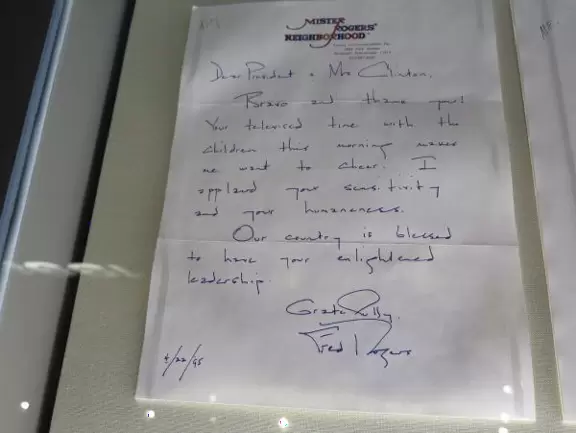 MISTER
ROGERS'
NEIGHBORHOOD
Dear President & Mrs Clinton,
Bravo and thank you!
Your televised time with the
children this morning makes
me want to cheer. I
applaud your sensitivity
and your humaneness.
Our country is blessed
to have your enlightened
leadership.
Gratefully,
Fred Rogers
4/22/95